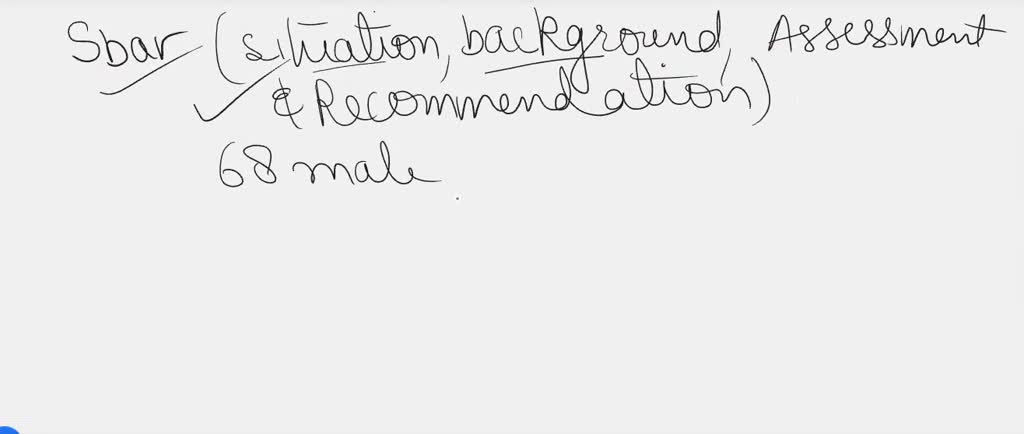 Sbar (situation, background, Assessment
& Recommendation)
68 male